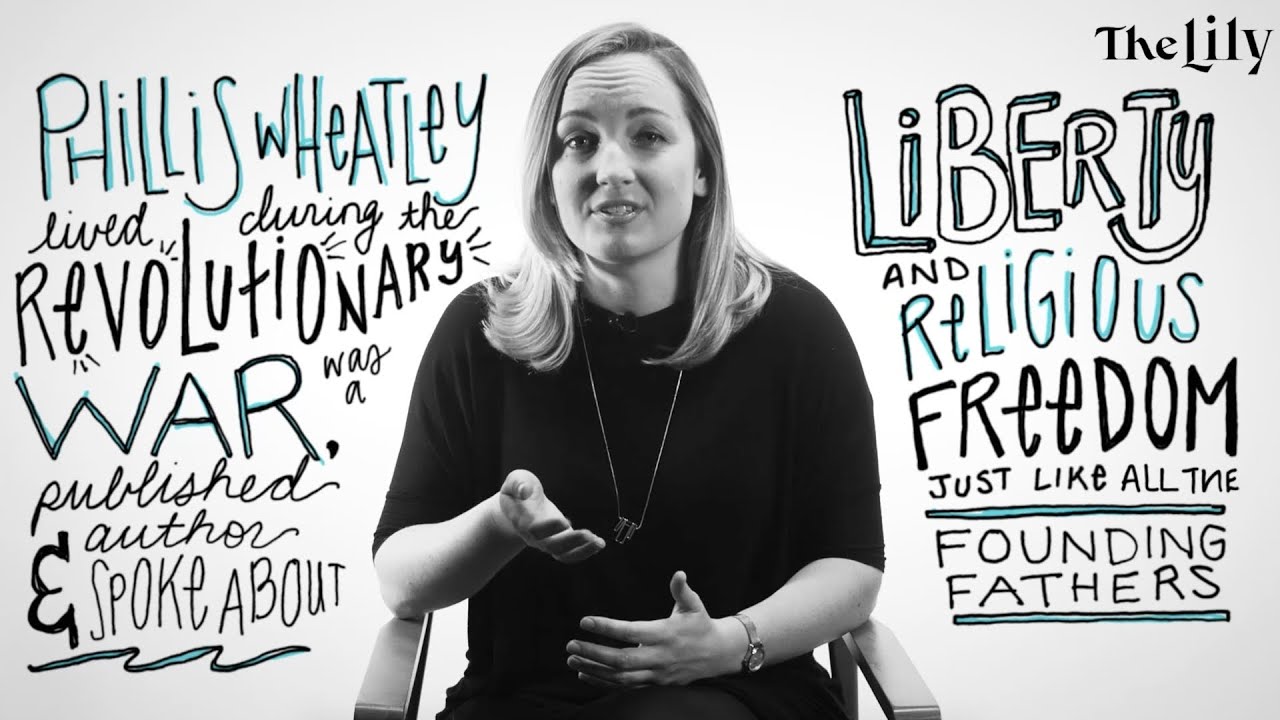 The Lily
PHILLIS WHEATLEY
lived during the
REVOLUTIONARY
WAR, was
a
published
author
& SPOKE ABOUT
LIBERTY
AND
RELIGIOUS
FREEDOM
JUST LIKE ALL THE
FOUNDING
FATHERS